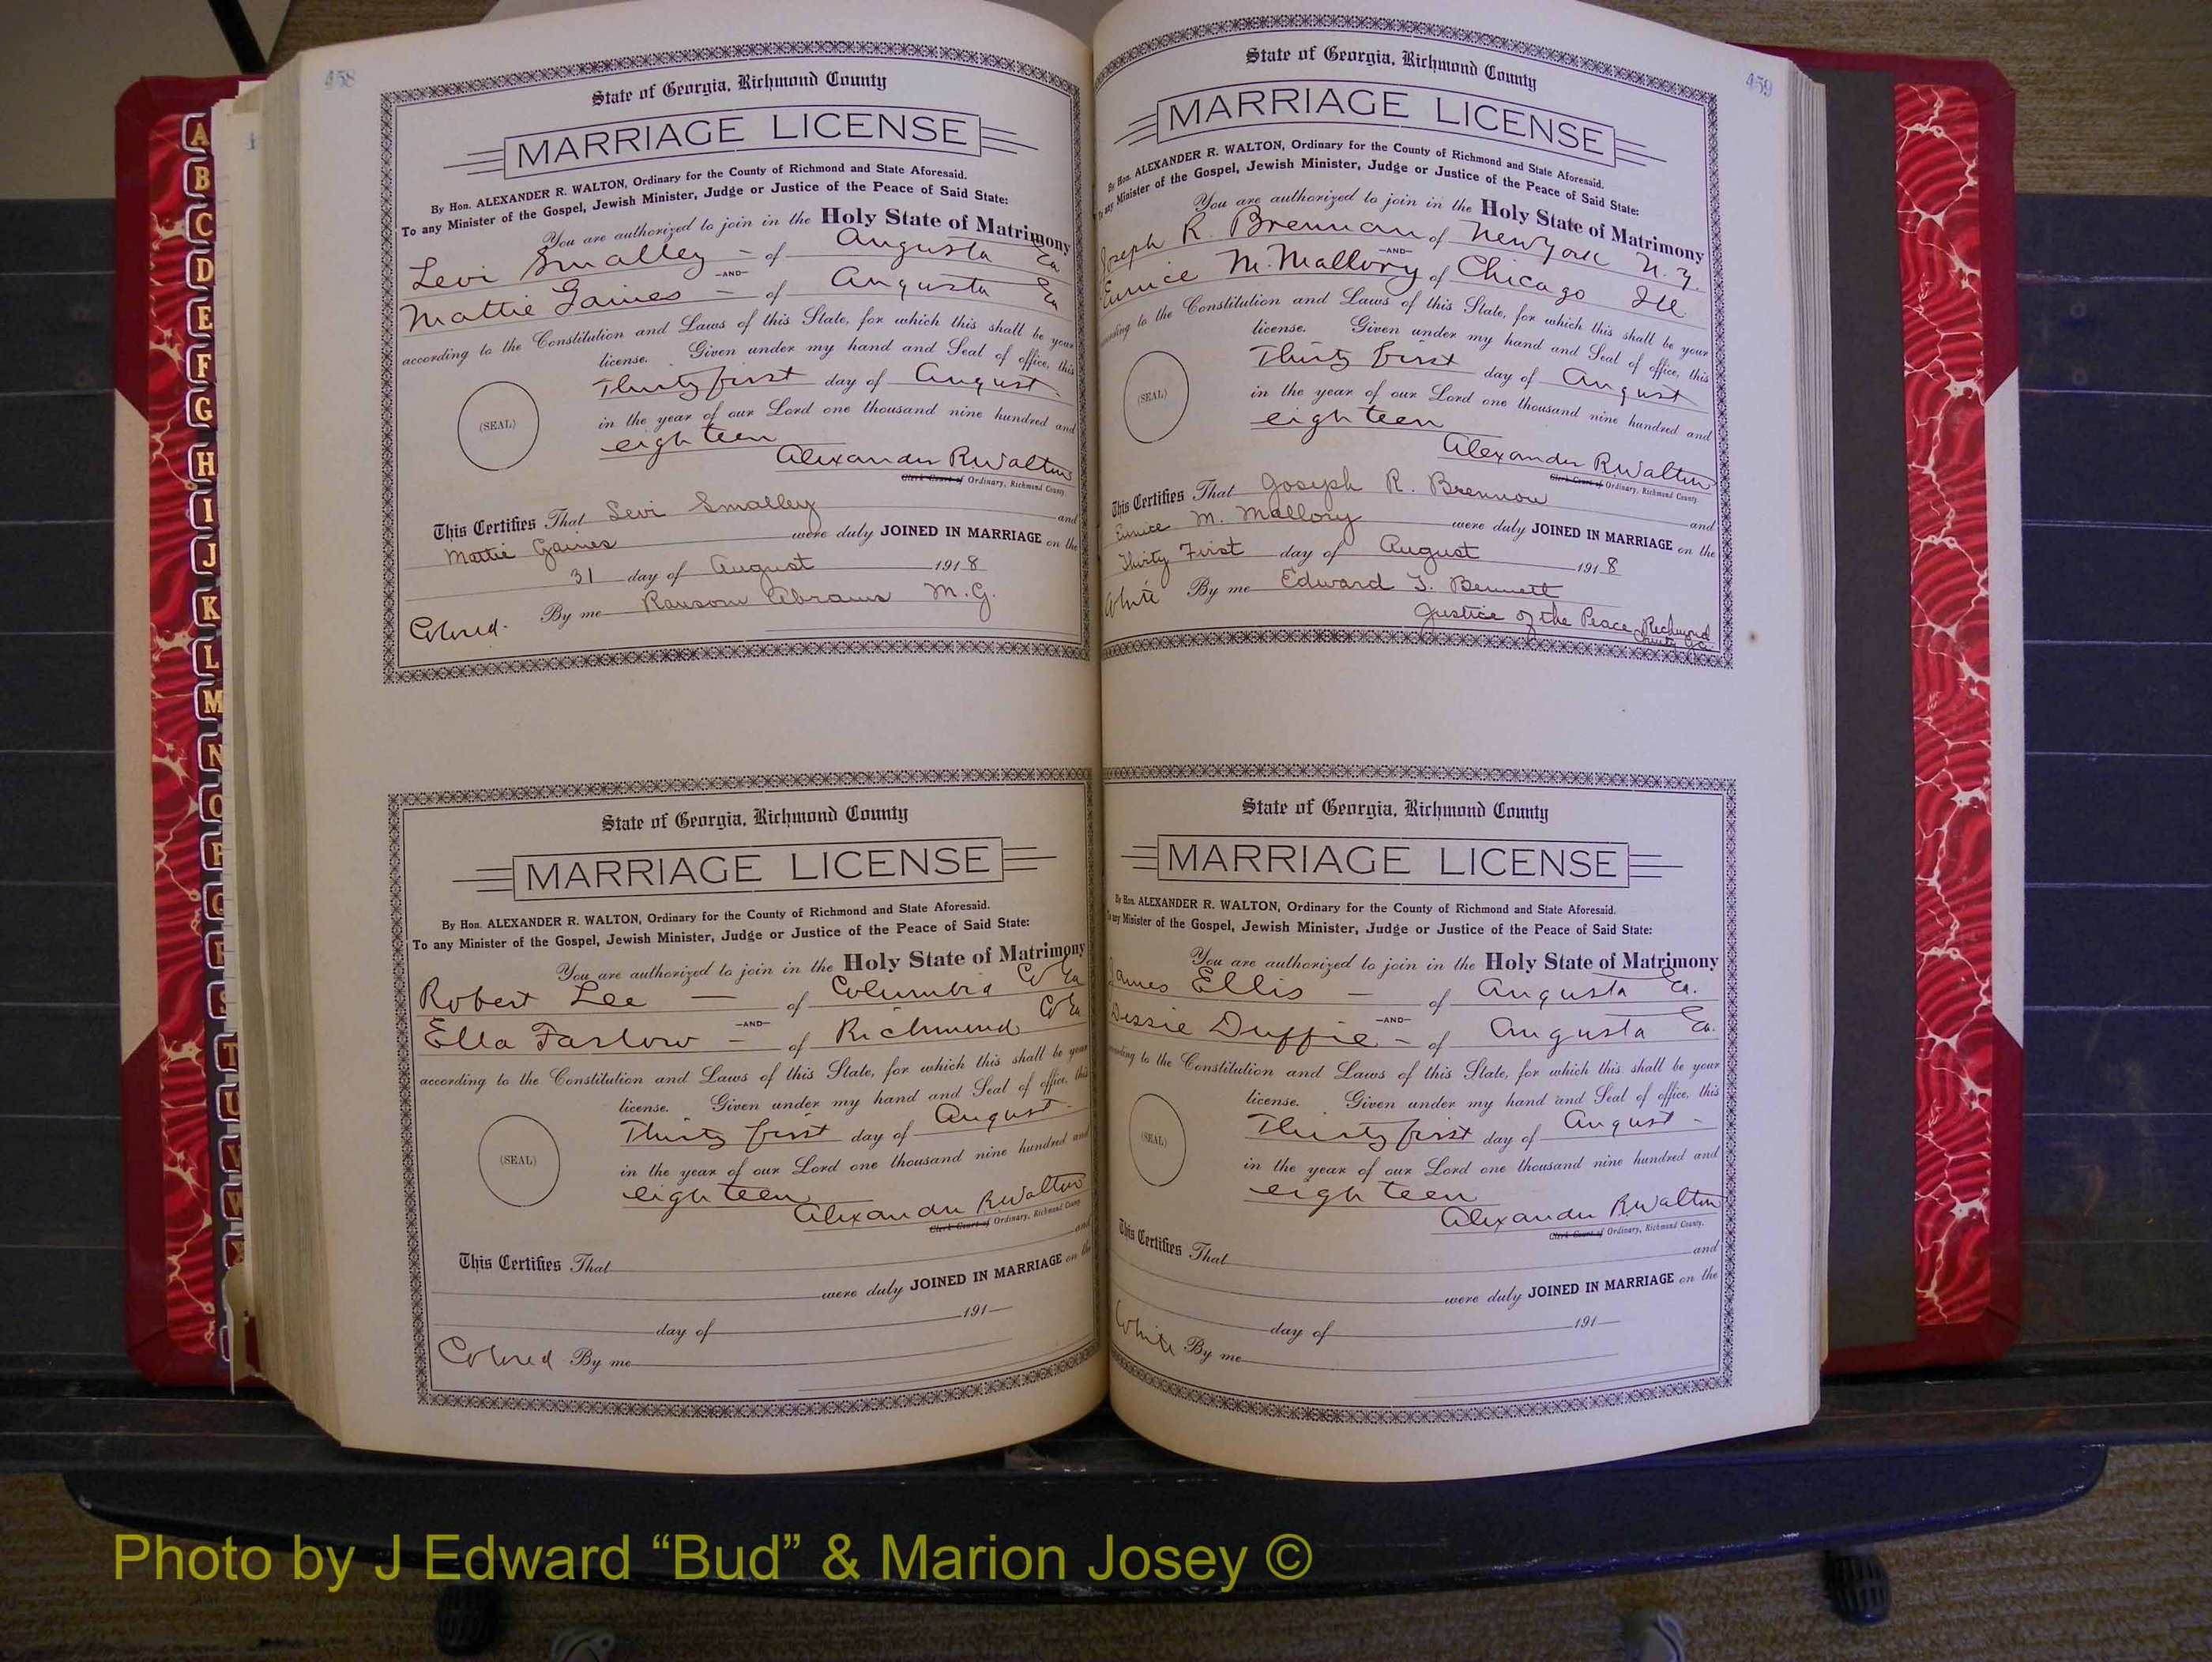 A
B
C
D
E
F
G
H
I
J
K
L
M
N
O
P
Q
R
S
T
U
V
W
X
458
State of Georgia, Richmond County
MARRIAGE LICENSE
By Hon. ALEXANDER R. WALTON, Ordinary for the County of Richmond and State Aforesaid.
To any Minister of the Gospel, Jewish Minister, Judge or Justice of the Peace of Said State:
You are authorized to join in the Holy State of Matrimony
Levi Smalley - of Augusta Ga
-AND-
Mattie Gaines - of Augusta Ga
according to the Constitution and Laws of this State, for which this shall be your
license. Given under my hand and Seal of office, this
(SEAL)
Thirty first day of August
in the year of our Lord one thousand nine hundred and
eighteen
Alexander R Walton
Clerk Court of Ordinary, Richmond County
This Certifies That Levi Smalley and
Mattie Gaines were duly JOINED IN MARRIAGE on the
31 day of August 1918
Colored. By me Ransom Abrams M.G.
State of Georgia, Richmond County
MARRIAGE LICENSE
By Hon. ALEXANDER R. WALTON, Ordinary for the County of Richmond and State Aforesaid.
To any Minister of the Gospel, Jewish Minister, Judge or Justice of the Peace of Said State:
You are authorized to join in the Holy State of Matrimony
Robert Lee - of Columbia Co Ga
-AND-
Ella Farlow - of Richmond Co Ga
according to the Constitution and Laws of this State, for which this shall be your
license. Given under my hand and Seal of office, this
(SEAL)
Thirty first day of August
in the year of our Lord one thousand nine hundred and
eighteen
Alexander R Walton
Clerk Court of Ordinary, Richmond County
This Certifies That and
were duly JOINED IN MARRIAGE on the
day of 191
Colored By me
459
State of Georgia, Richmond County
MARRIAGE LICENSE
By Hon. ALEXANDER R. WALTON, Ordinary for the County of Richmond and State Aforesaid.
To any Minister of the Gospel, Jewish Minister, Judge or Justice of the Peace of Said State:
You are authorized to join in the Holy State of Matrimony
Joseph R. Brennan of New York N.Y.
-AND-
Eunice M. Mallory of Chicago Ill
according to the Constitution and Laws of this State, for which this shall be your
license. Given under my hand and Seal of office, this
(SEAL)
Thirty first day of August
in the year of our Lord one thousand nine hundred and
eighteen
Alexander R Walton
Clerk Court of Ordinary, Richmond County
This Certifies That Joseph R. Brennon and
Eunice M. Mallory were duly JOINED IN MARRIAGE on the
Thirty First day of August 1918
White By me Edward T. Bennett
Justice of the Peace Richmond
County Ga.
State of Georgia, Richmond County
MARRIAGE LICENSE
By Hon. ALEXANDER R. WALTON, Ordinary for the County of Richmond and State Aforesaid.
To any Minister of the Gospel, Jewish Minister, Judge or Justice of the Peace of Said State:
You are authorized to join in the Holy State of Matrimony
James Ellis - of Augusta Ga.
-AND-
Dessie Duffie - of Augusta Ga.
according to the Constitution and Laws of this State, for which this shall be your
license. Given under my hand and Seal of office, this
(SEAL)
Thirty first day of August -
in the year of our Lord one thousand nine hundred and
eighteen
Alexander R Walton
Clerk Court of Ordinary, Richmond County.
This Certifies That and
were duly JOINED IN MARRIAGE on the
day of 191
White By me
Photo by J Edward “Bud” & Marion Josey ©